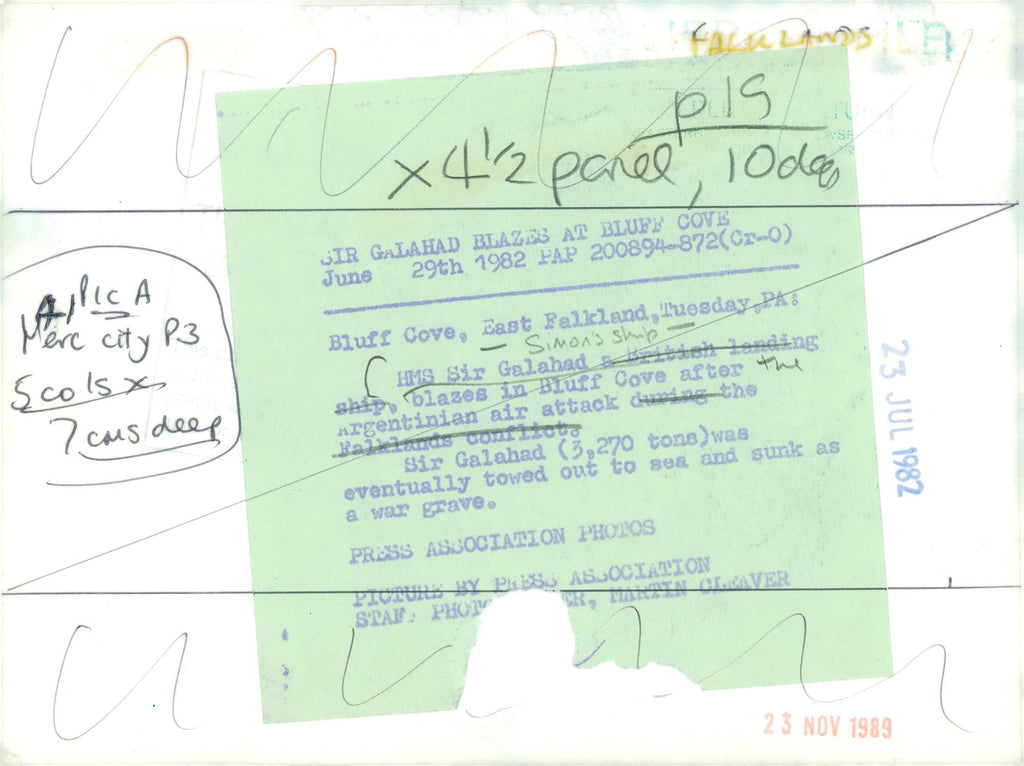 FALKLANDS
p 19
x 4 1/2 panel, 10 deep
SIR GALAHAD BLAZES AT BLUFF COVE
June 29th 1982 PAP 200894-872(Cr-O)
Bluff Cove, East Falkland, Tuesday, PA:
Simon's ship
HMS Sir Galahad a British landing
ship, blazes in Bluff Cove after the
Argentinian air attack during the
Falklands conflict.
Sir Galahad (3,270 tons) was
eventually towed out to sea and sunk as
a war grave.
PRESS ASSOCIATION PHOTOS
PICTURE BY PRESS ASSOCIATION
STAFF PHOTO ER, MARTIN CLEAVER
Pic A
Merc city P3
5 cols x
7 cms deep
23 JUL 1982
23 NOV 1989